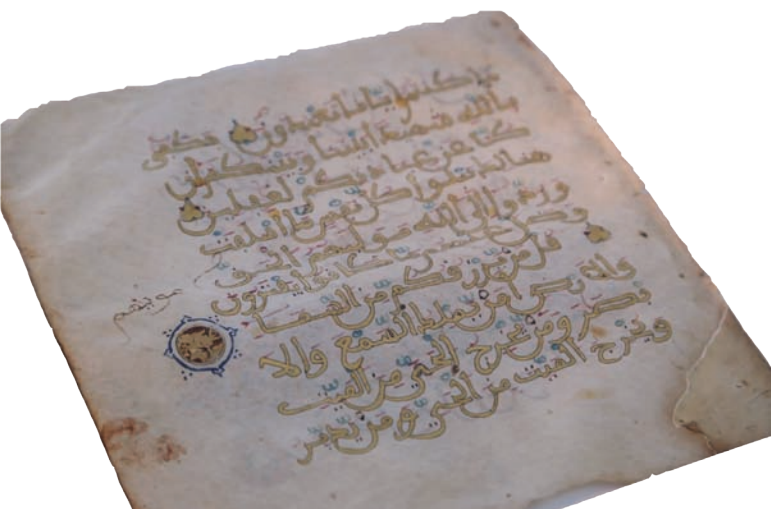 ما كنتم إيانا تعبدون فكفى
بالله شهيدا بيننا وبينكم إن
كنا عن عبادتكم لغفلين
هنالك تبلوا كل نفس ما أسلفت
وردوا إلى الله موليهم الحق
وضل عنهم ما كانوا يفترون
موليهم
قل من يرزقكم من السماء
والارض أمن يملك السمع والا
بصر ومن يخرج الحي من الميت
ويخرج الميت من الحي ومن يدبر